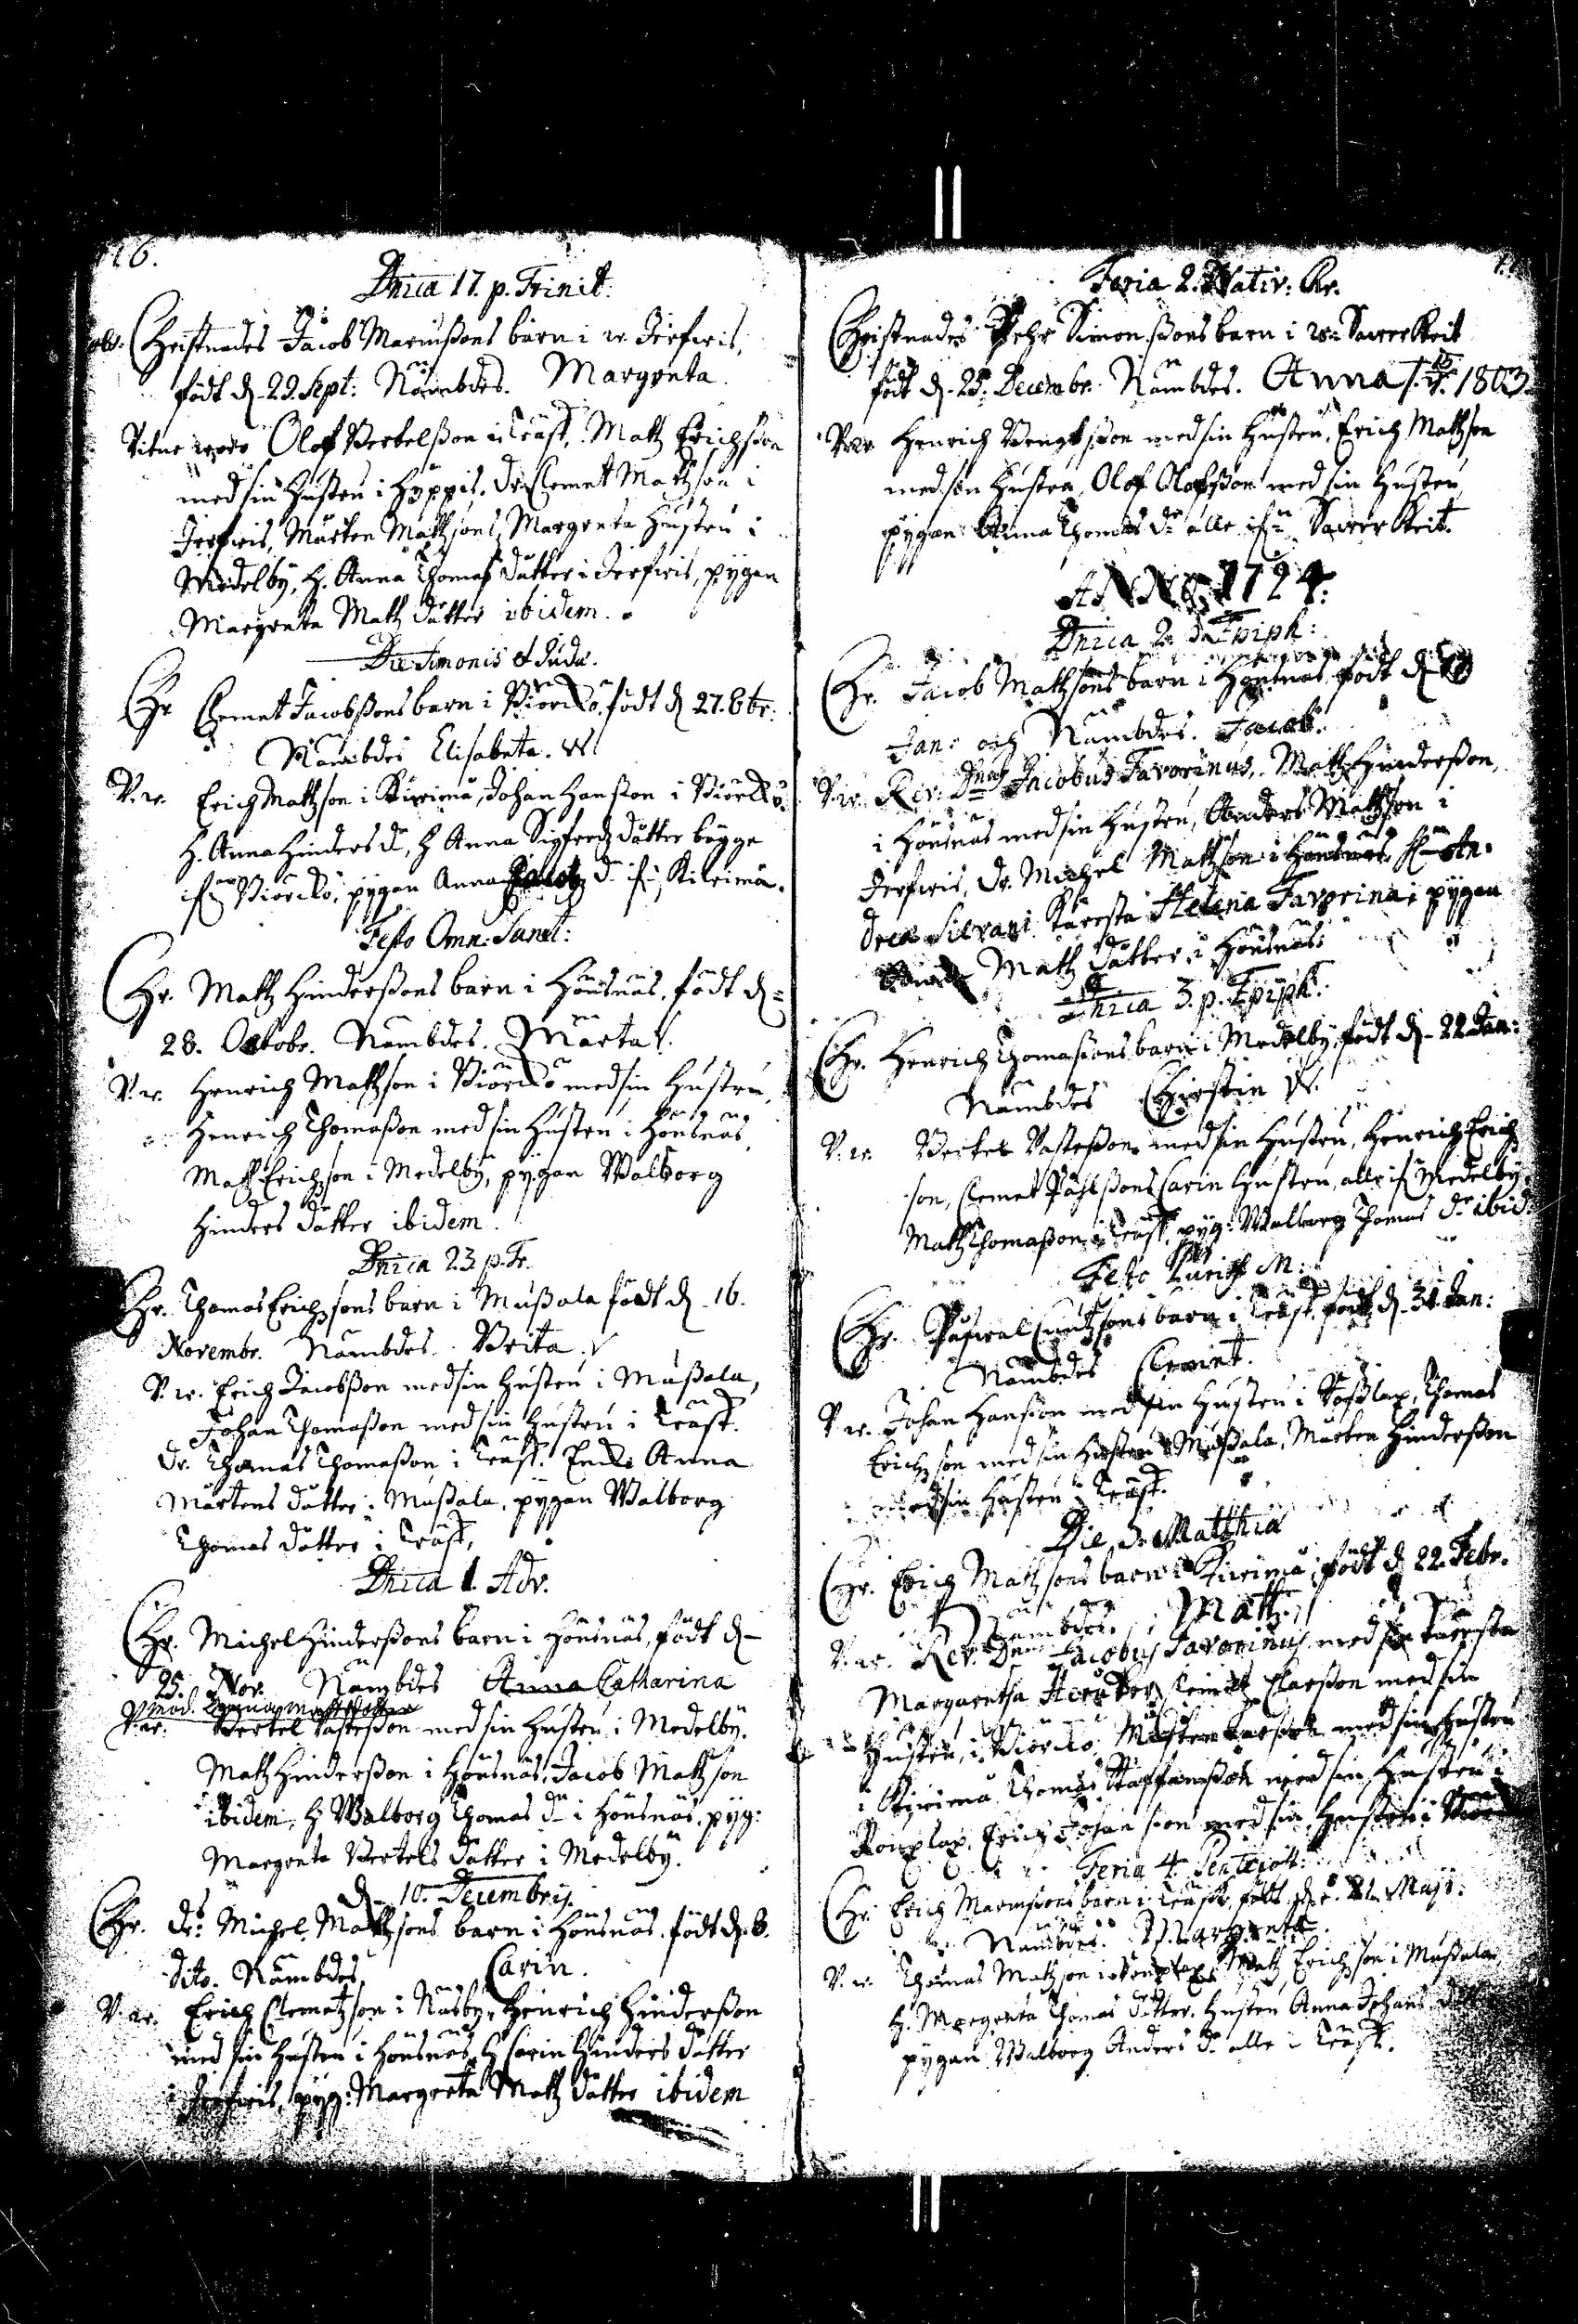 116.
Dnica 17. p. Trinit:
Christnades Jacob Marcussons barn i w. Jerfwis,
födt d. 29. Sept: Nämbdes. Margreta
Vitne woro Olof Bertelsson i Träsk, Matz Erichsson
med sin Hustru i Hyppis, Dr. Clemet Matzson i
Jerfwis, Mårten Matzsons Margreta Hustru i
Medelby, H. Anna Thomas dåtter i Jerfwis, pygan
Margreta Matz dåtter ibidem.
Die Simonis et Judæ.
Chr. Clemet Jacobssons barn i Biörckö, födt d. 27. 8br:
Nämbdes Elisabeta.
V. w. Erich Matzson i Kirimä, Johan Hansson i Biörckö,
H. Anna Hinders dr, H Anna Sigfredz dåtter bägge
ifrån Biörckö, pygan Anna dr ifr. Kirimä.
Festo Omn: Sanct:
Chr. Matz Hinderssons barn i Hönsnäs, födt d.
28. Octobr. Nämbdes. Märta
V. w. Henrich Matzson i Biörckö med sin Hustru,
Henrich Thomasson med sin Hustru i Hönsnäs
Matz Erichson i Medelby, pygan Walborg
Hinders dåtter ibidem.
Dnica 23 p. Tr.
Chr. Thomas Erichsons barn i Mussala födt d. 16.
Novembr. Nämbdes. Brita.
V. w. Erich Jacobsson med sin Hustru i Mussala,
Johan Thomasson med sin Hustru i Träsk.
Dr. Thomas Thomasson i Träsk. Enck. Anna
Mårtens dåtter i Mussala, pygan Walborg
Thomas dåtter i Träsk.
Dnica 1. Adv.
Chr. Michel Hinderssons barn i Hönsnäs, födt d.
25. Nov. Nämbdes Anna Catharina
V. w. Bertel Wastesson med sin Hustru i Medelby.
Matz Hindersson i Hönsnäs, Jacob Matzson
ibidem, H Walborg Thomas dr i Hönsnäs, pyg:
Margreta Bertels dåtter i Medelby.
d. 10. Decembris.
Chr. Dr. Michel Matzsons barn i Hönsnäs födt d. 6.
dito. Nämbdes Carin.
V. w. Erich Clemetzson i Näsby, Heinrich Hindersson
med sin Hustru i Hönsnäs, H Carin Hinders dåtter
i Jerfwis, pyg: Margreta Matz dåtter ibidem
Feria 2. Nativ: Chr.
Christnades Pehr Simonssons barn i
födt d. 25. Decembr. Nämbdes. Anna 1803
V. w. Henrich Bengtsson med sin Hustru, Erich Matzson
med sin Hustru, Olof Olofsson med sin Hustru
pygan Anna Thomas dr alle ifrån
ANNO 1724.
Dnica 2. p. Epiph:
Chr. Jacob Matzsons barn i Hönsnäs födt d.
Jan: och Nämbdes. Jacob.
V. w. Rev: Dnus Jacobus Favorinus, Matz Hindersson,
i Hönsnäs med sin Hustru, Anders Matzson i
Jerfwis, Dr. Michel Matzson i Hönsnäs H. An-
dreæ Silvani Käresta Helena Favorina, pygan
Matz dåtter i Hönsnäs.
Dnica 3. p. Epiph:
Chr. Henrich Thomassons barn i Medelby födt d. 22 Jan:
Nämbdes Christin
V. w. Bertel Wastesson med sin Hustru, Henrich Erich
son, Clemet Påhlssons Carin Hustru, alle ifr. Medelby.
Matz Thomasson i Träsk. pyg: Walborg Thomas dr ibid:
Festo Purif. M:
Chr. Påfwal Cnutzsons barn i Träsk. födt d. 31 Jan:
Nämbdes Clemet.
V. w. Johan Hansson med sin Hustru i Tosslax, Thomas
Erichson med sin Hustru i Mussala, Mårten Hindersson
med sin Hustru i Träsk.
Die D. Matthiæ
Chr. Erich Matzsons barn i Kirimä, födt d. 22 Febr.
Nämbdes. Matz.
V. w. Rev. Dnus Jacobus Favorinus med sin Käresta
Margaretha Clarsson med sin
Hustru, i Biörckö, Mårten Larsson med sin Hustru
i Kirimä, Thomas Staffansson med sin Hustru i
Rönplax, Erich Johansson med sin Hustru i
Feria 4 Pentecost:
Chr. Erich Marcussons barn i Träsk, födt d. Maji:
Nämbdes. Margreta
V. w. Thomas Matzson i Matz Erichson i Mussala,
H. Margreta Thomas dåtter. Hustru Anna Johans
pygan Walborg Anders dr alle i Träsk.